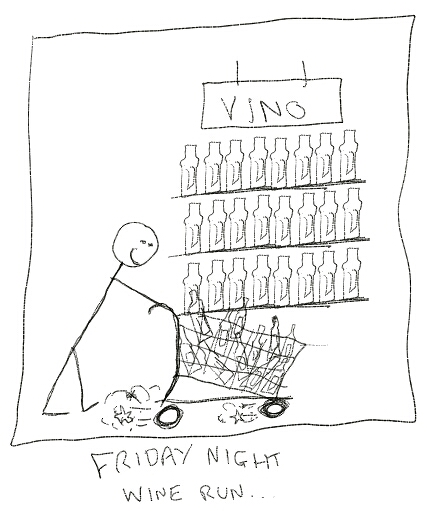 VINO
FRIDAY NIGHT
WINE RUN...